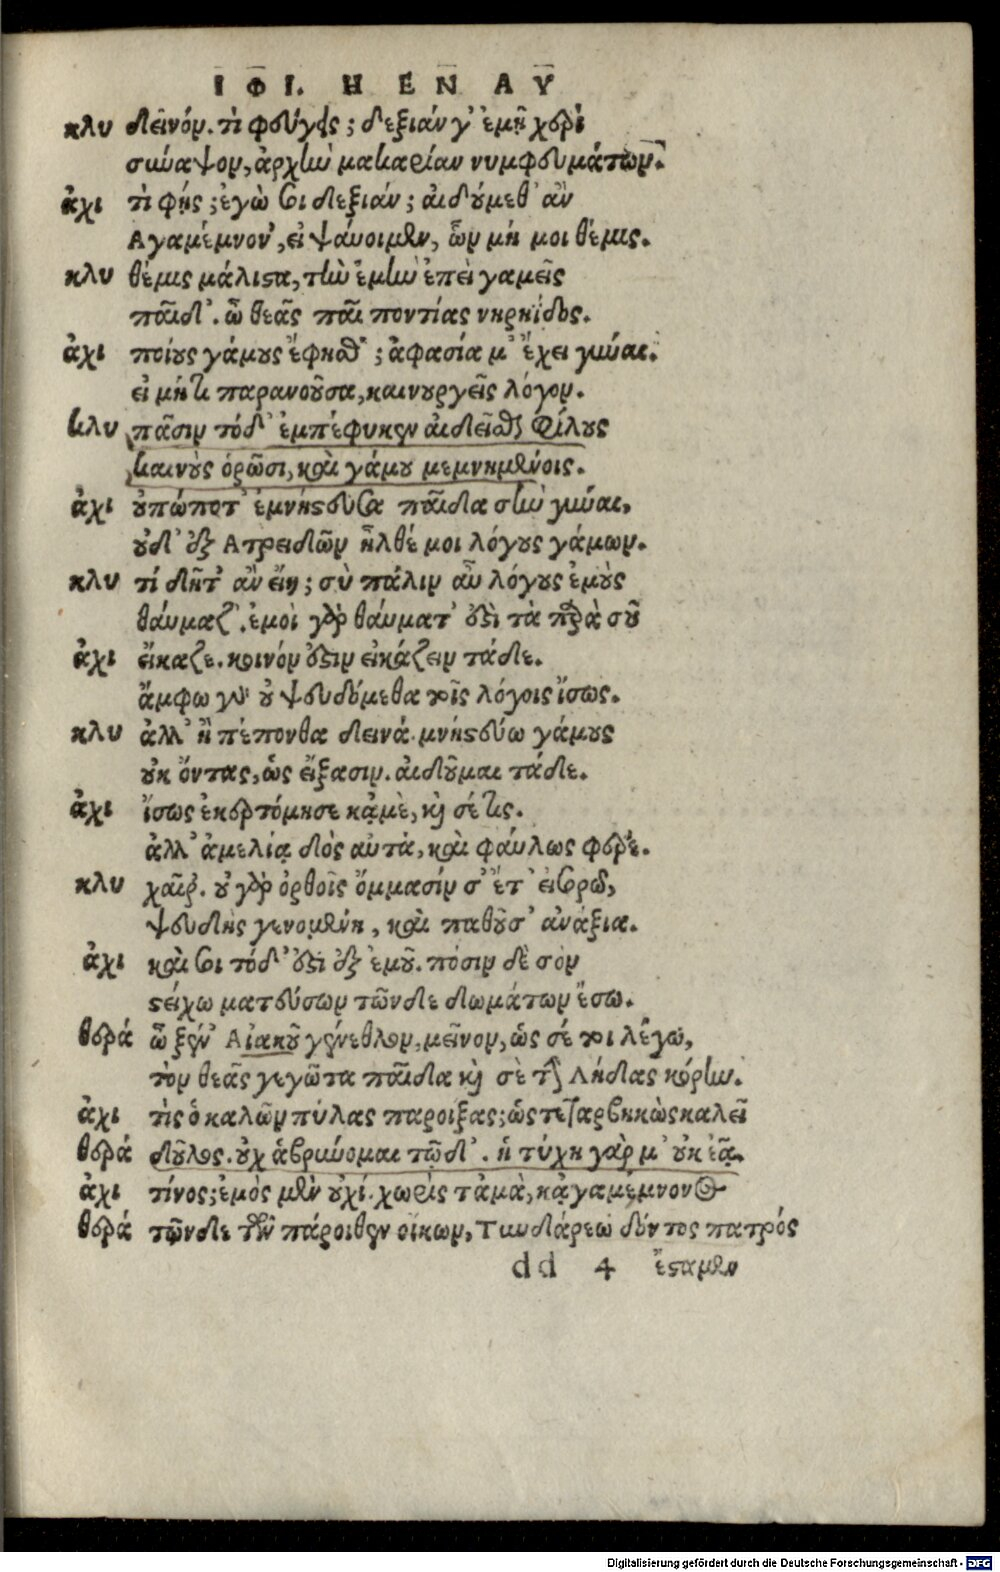 ΙΦΙ. Η ΕΝ ΑΥ
κλυ δεῖνόν. τί φεύγεις; δεξιάν γ' ἐμῇ χερὶ
σύναψον, ἀρχὴν μακαρίαν νυμφευμάτων.
ἀχι τί φῄς; ἐγώ σοι δεξιάν; αἰδούμεθ' ἂν
Αγαμέμνον', εἰ ψαύοιμεν, ὧν μή μοι θέμις.
κλυ θέμις μάλιστα, τὴν ἐμὴν ἐπεὶ γαμεῖς
παῖδ'. ὦ θεᾶς παῖ ποντίας νηρηίδος.
ἀχι ποίους γάμους ἔφησθ'; ἀφασία μ' ἔχει γύναι.
εἰ μή τι παρανοῦσα, καινουργεῖς λόγον.
κλυ πᾶσιν τόδ' ἐμπέφυκεν αἰδεῖσθαι φίλους
καινοὺς ὁρῶσι, καὶ γάμου μεμνημένοις.
ἀχι οὐπώποτ' ἐμνήστευσα παῖδα σὴν γύναι,
οὐδ' ἐξ Ατρειδῶν ἦλθέ μοι λόγους γάμων.
κλυ τί δῆτ' ἂν εἴη; σὺ πάλιν αὖ λόγους ἐμοὺς
θαύμαζ'. ἐμοὶ γὰρ θαύματ' ἐστὶ τὰ παρὰ σοῦ
ἀχι εἴκαζε. κοινόν ἐστιν εἰκάζειν τάδε.
ἄμφω γὰρ οὐ ψευδόμεθα τοῖς λόγοις ἴσως.
κλυ ἀλλ' ἦ πέπονθα δεινά. μνηστεύω γάμους
οὐκ ὄντας, ὡς εἴξασιν. αἰδοῦμαι τάδε.
ἀχι ἴσως ἐκερτόμησε κἀμὲ, καὶ σέ τις.
ἀλλ' ἀμελίᾳ δὸς αὐτά, καὶ φαύλως φέρε.
κλυ χαῖρ'. οὐ γὰρ ὀρθοῖς ὄμμασίν σ' ἔτ' εἰσορῶ,
ψευδὴς γενομένη, καὶ παθοῦσ' ἀνάξια.
ἀχι καὶ σοι τόδ' ἐστὶ ἐξ ἐμοῦ. πόσιν δὲ σὸν
στείχω ματεύσων τῶνδε δωμάτων ἔσω.
θερά ὦ ξέν' Αἰακοῦ γένεθλον, μεῖνον, ὡς σέ τοι λέγω,
τὸν θεᾶς γεγῶτα παῖδα καὶ σὲ τὴν Λήδας κόρην.
ἀχι τίς ὁ καλῶν πύλας παροίξας; ὡς τεταρβηκὼς καλεῖ
θερά δοῦλος. οὐχ ἁβρύνομαι τῷδ'. ἡ τύχη γάρ μ' οὐκ ἐᾷ.
ἀχι τίνος; ἐμὸς μὲν οὐχί. χωρὶς τἀμὰ, κἀγαμέμνονος
θερά τῶνδε τῶν πάροιθεν οἴκων, Τυνδάρεω δόντος πατρός
dd 4 ἔσταμεν
Digitalisierung gefördert durch die Deutsche Forschungsgemeinschaft - DFG